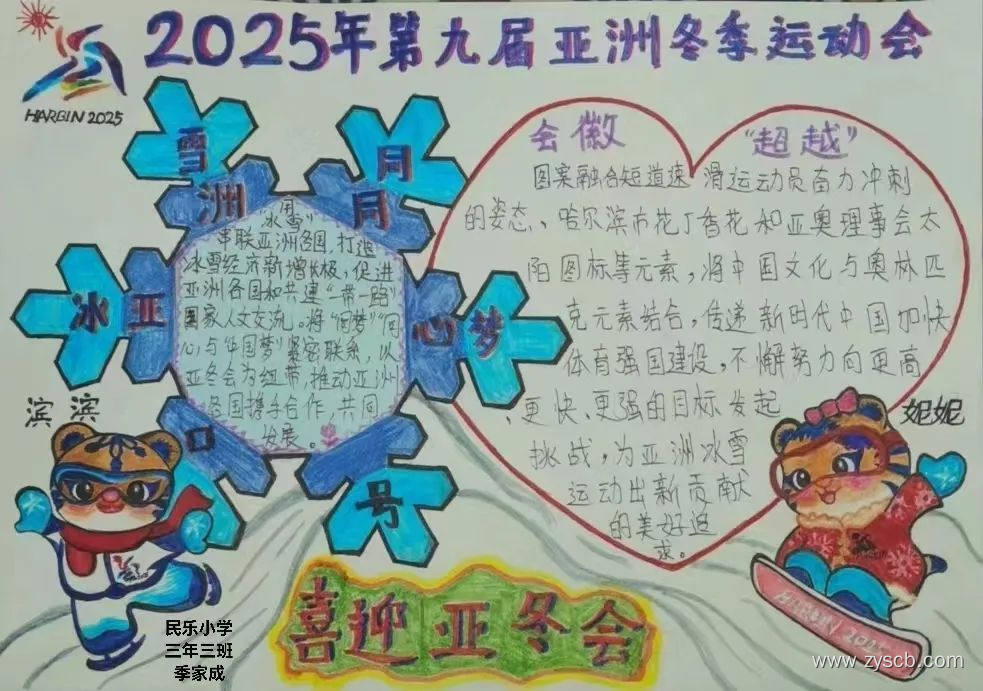 2025年第九届亚洲冬季运动会
HARBIN 2025
雪
洲
同
同
冰 亚
心 梦
口
号
"用
冰雪"
串联亚洲各国,打造
冰雪经济新增长极,促进
亚洲各国和共建"一带一路"
国家人文交流。将"同梦""同
心"与"中国梦"紧密联系,以
亚冬会为纽带,推动亚洲
各国携手合作,共同
发展。
会徽 "超越"
图案融合短道速滑运动员奋力冲刺
的姿态、哈尔滨市花丁香花和亚奥理事会太
阳图标等元素,将中国文化与奥林匹
克元素结合,传递新时代中国加快
体育强国建设,不懈努力向更高
、更快、更强的目标发起
挑战,为亚洲冰雪
运动出新贡献
的美好追
求。
滨滨
妮妮
喜迎亚冬会
HARBIN 2025
民乐小学
三年三班
季家成
www.zyscb.com